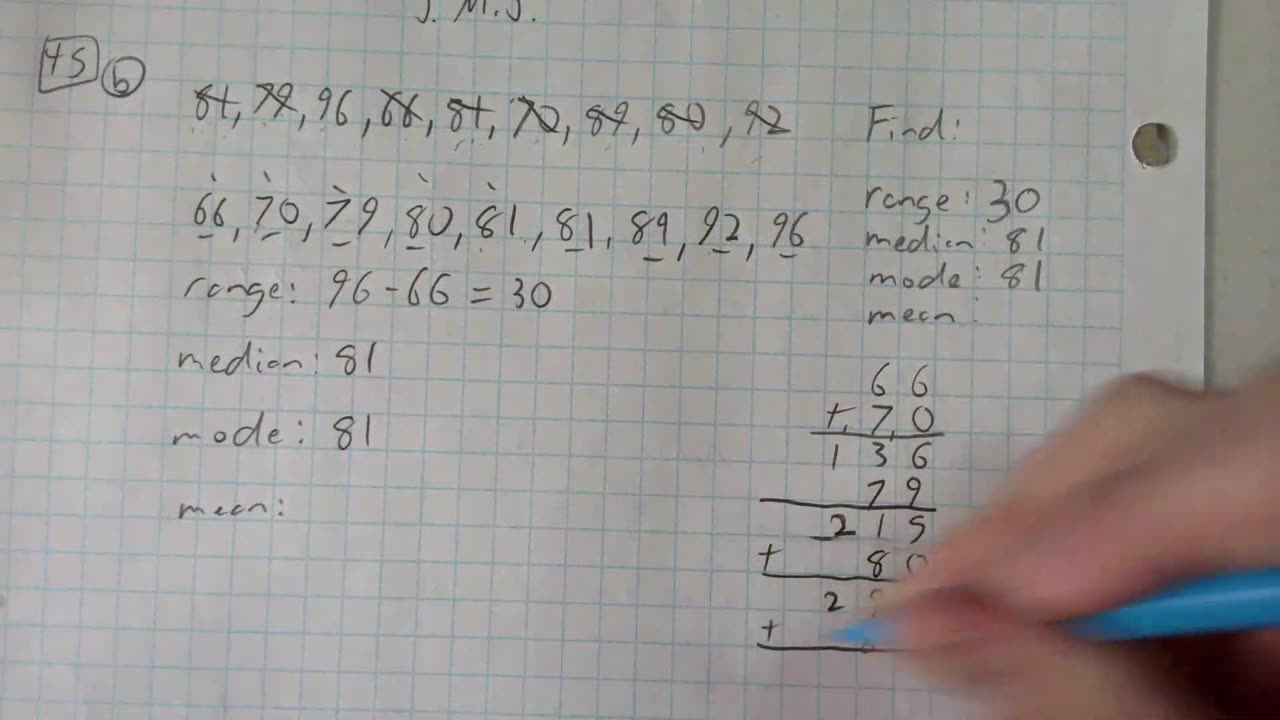 J. M. J.
45 b
81, 79, 96, 66, 81, 70, 89, 80, 92 Find:
66, 70, 79, 80, 81, 81, 89, 92, 96
range: 30
median: 81
mode: 81
mean:
range: 96 - 66 = 30
median: 81
mode: 81
mean:
66
+ 70
136
79
215
+ 80
2
+